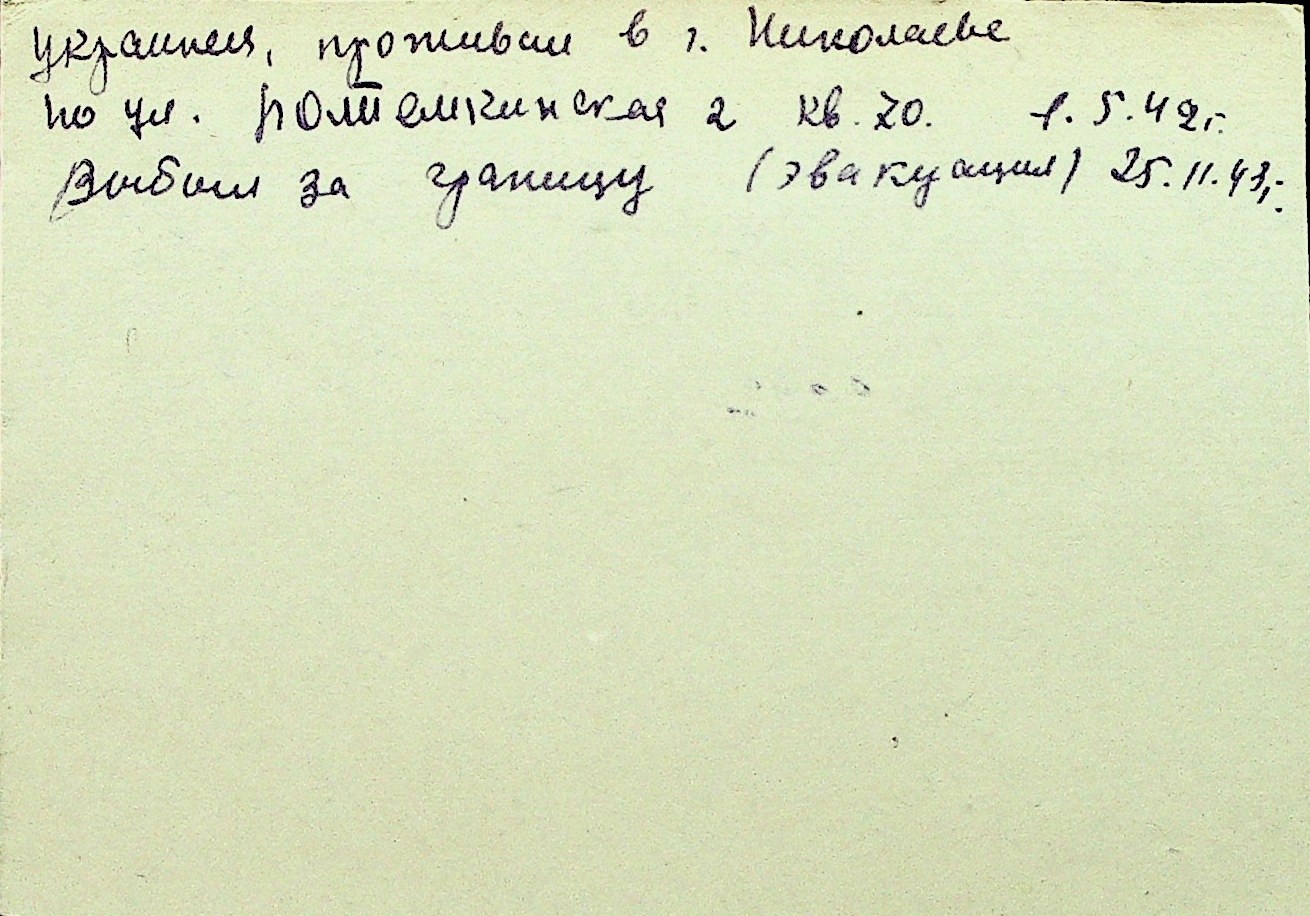 украинец, проживал в г. Николаеве
по ул. Потемкинская 2 кв. 70. 1.5.42г.
Выбыл за границу (эвакуация) 25.11.43г.